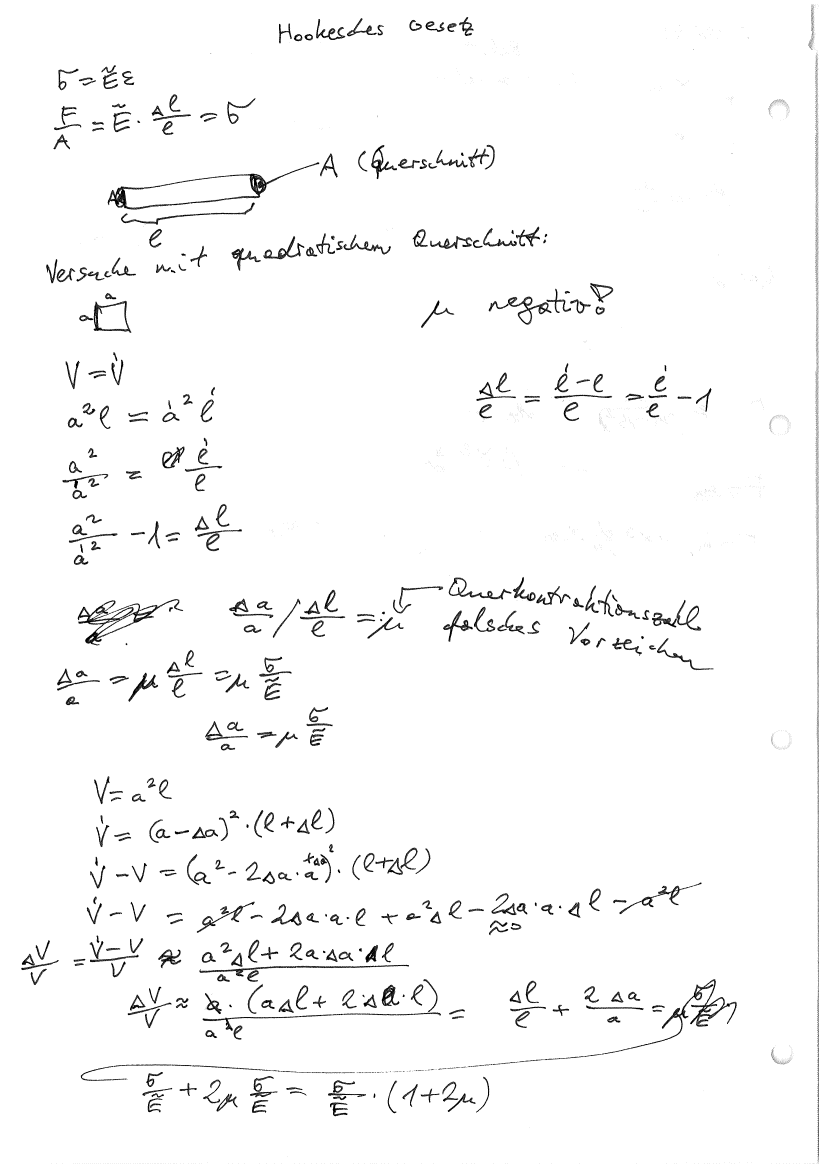 Hookesches Gesetz
σ = Ẽε
F/A = Ẽ · Δl/l = σ
A (Querschnitt)
A
l
Versuche mit quadratischem Querschnitt:
a
a
μ negativ!
V = V́
a²l = á²ĺ
Δl/l = (ĺ-l)/l = ĺ/l - 1
a²/á² = ĺ/l
a²/á² - 1 = Δl/l
Δa/a / Δl/l =: μ ← Querkontraktionszahl
falsches Vorzeichen
Δa/a = μ Δl/l = μ σ/Ẽ
Δa/a = μ σ/Ẽ
V = a²l
V́ = (a-Δa)² · (l+Δl)
V́ - V = (a² - 2Δa·a +Δa²) · (l+Δl)
V́ - V = a²l - 2Δa·a·l + a²Δl - 2Δa·a·Δl - a²l
≈0
ΔV/V = (V́-V)/V ≈ (a²Δl + 2a·Δa·l)/(a²l)
ΔV/V ≈ a·(aΔl + 2·Δa·l)/(a²l) = Δl/l + 2Δa/a =
σ/Ẽ + 2μ σ/Ẽ = σ/Ẽ · (1+2μ)